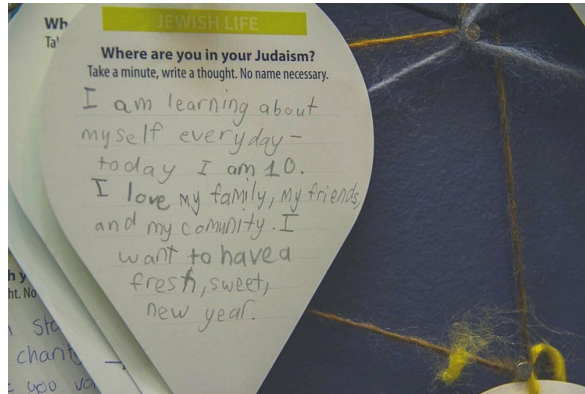 JEWISH LIFE
Where are you in your Judaism?
Take a minute, write a thought. No name necessary.
I am learning about
myself everyday –
today I am 10.
I love my family, my friends,
and my comunity. I
want to have a
fresh, sweet,
new year.
Wh
Ta
h y
ht. No
charit
you vo